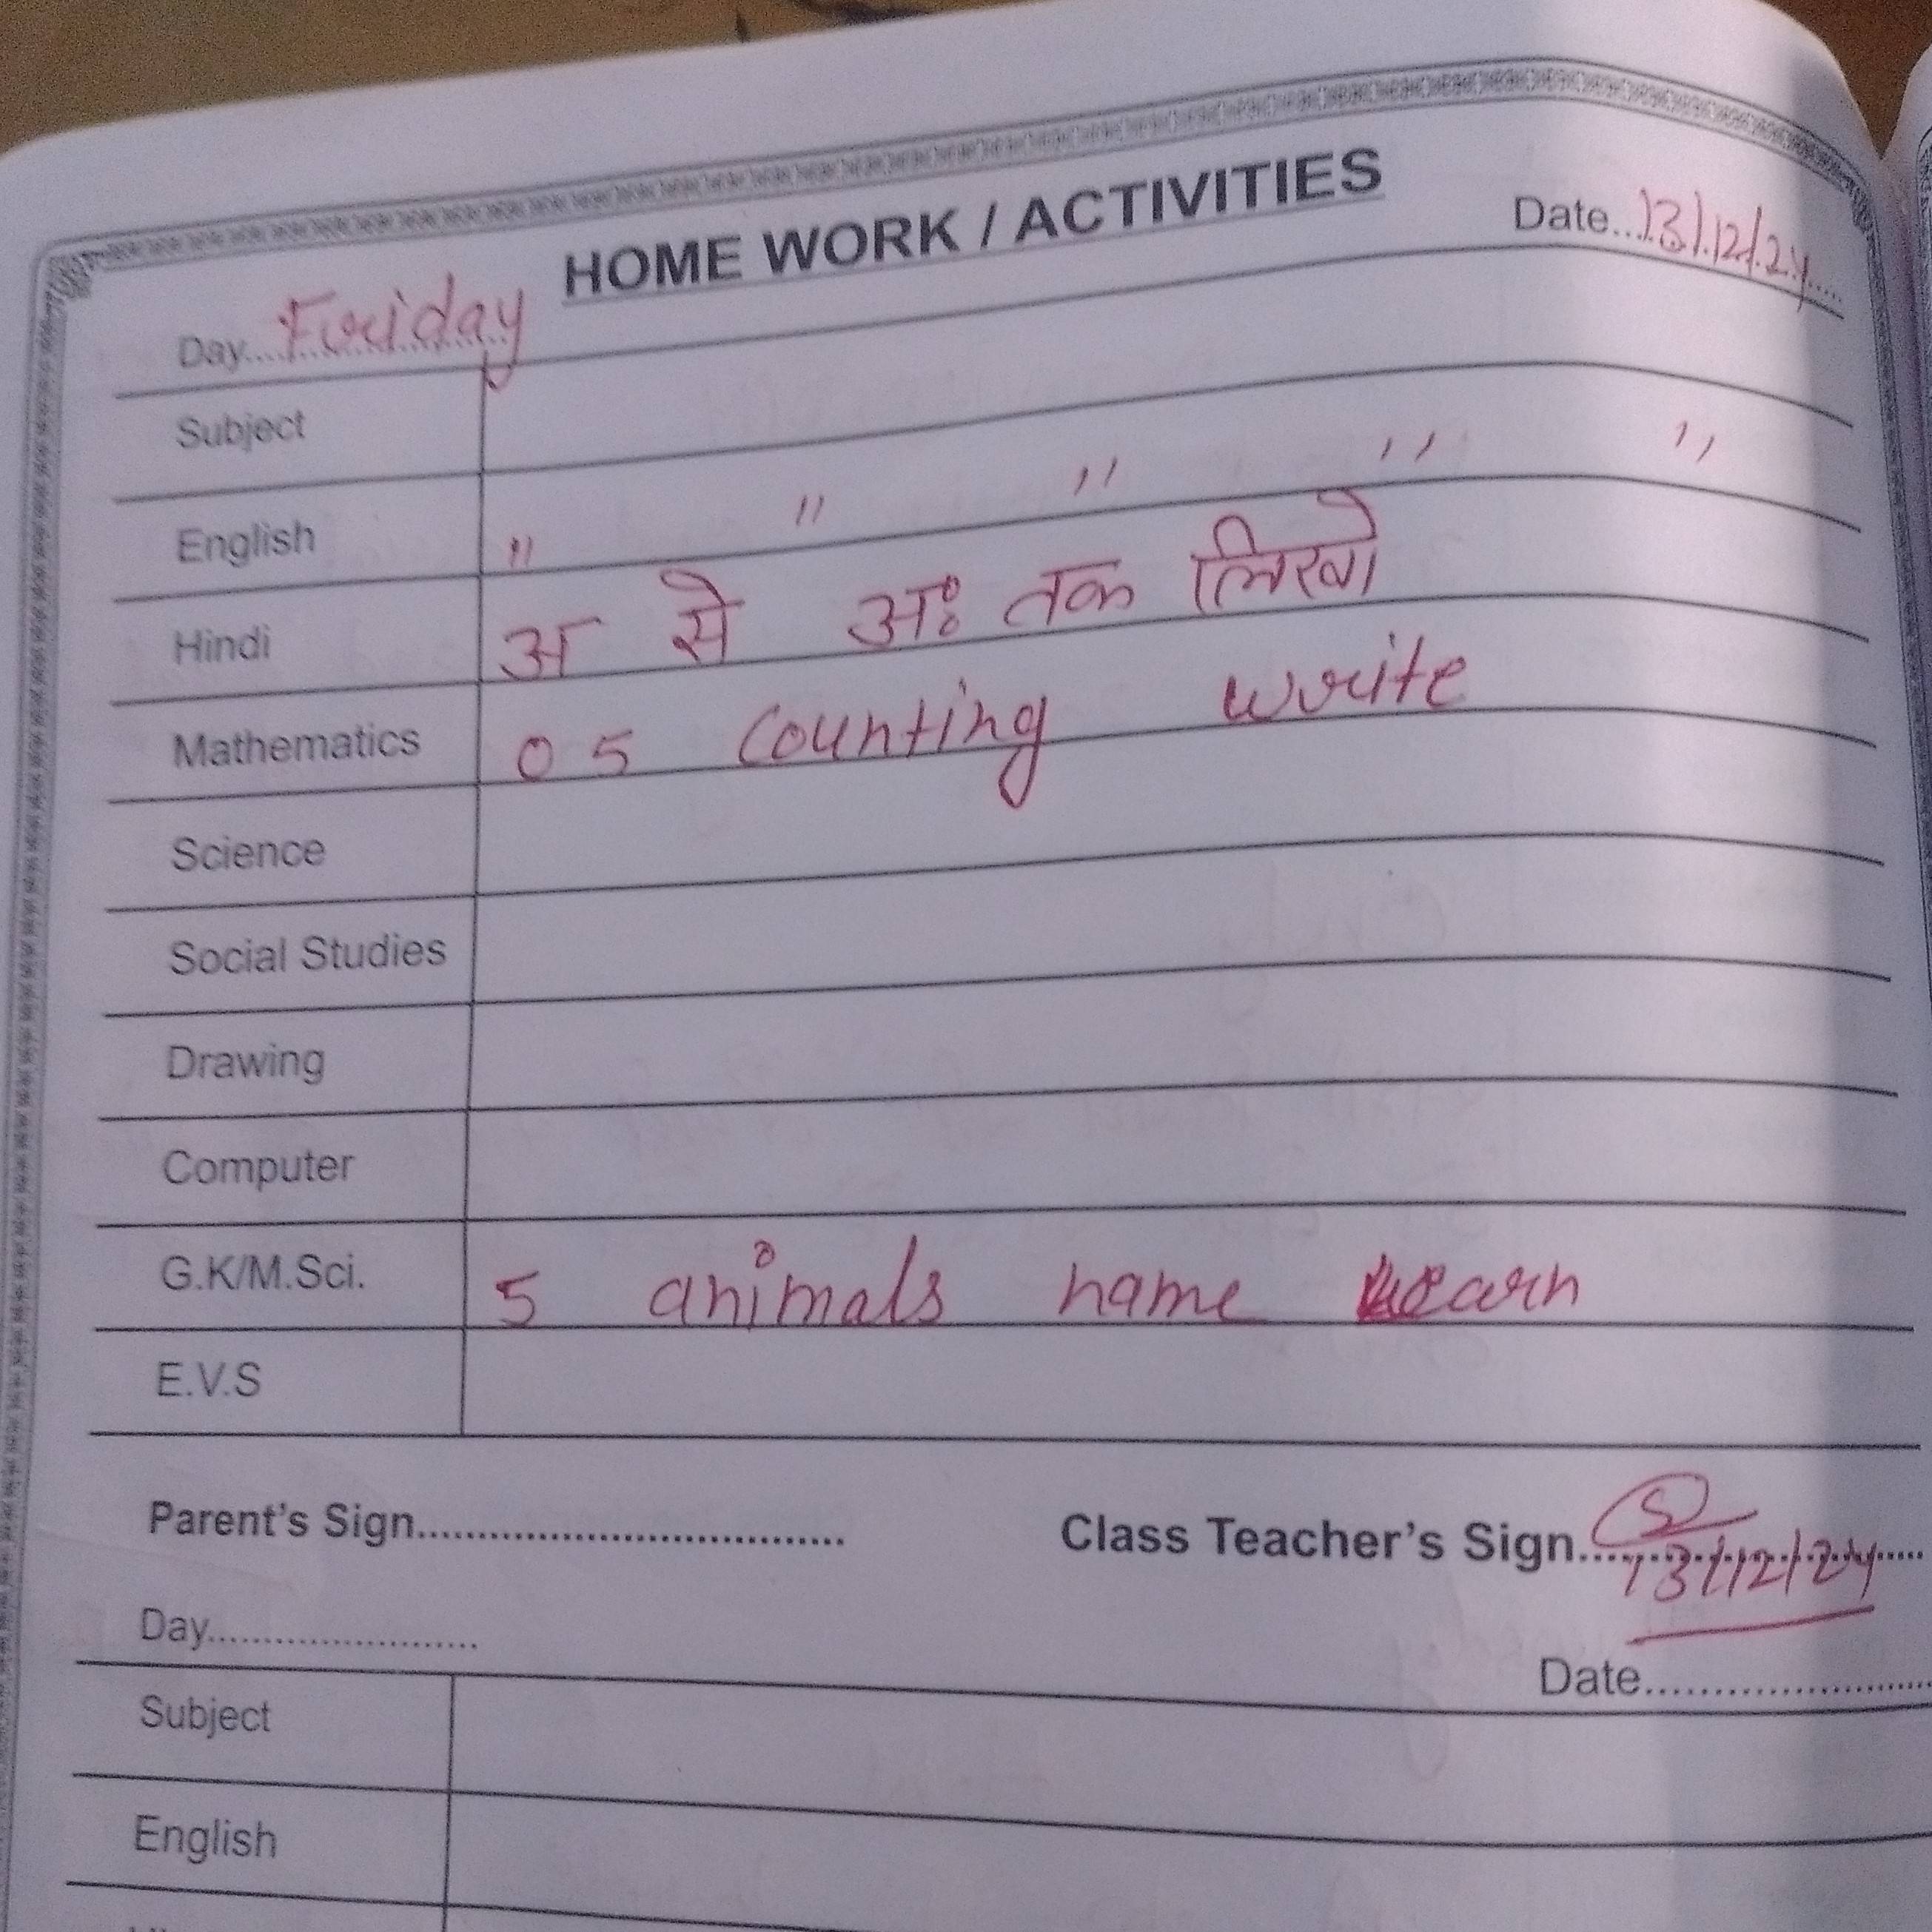 HOME WORK / ACTIVITIES
Day....Friday Date...13/12/24....
Subject
English " " " " "
Hindi अ से अः तक लिखो
Mathematics 05 counting write
Science
Social Studies
Drawing
Computer
G.K/M.Sci. 5 animals name learn
E.V.S
Parent's Sign.................................... Class Teacher's Sign.... 13/12/24
Day........................
Date........................
Subject
English